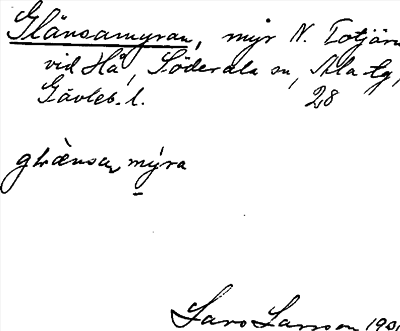 Glänsamyran, myr N. Totjärn
vid Hå, Söderala sn, Ala tg,
Gävleb. l. 28
myra
Lars Larsson